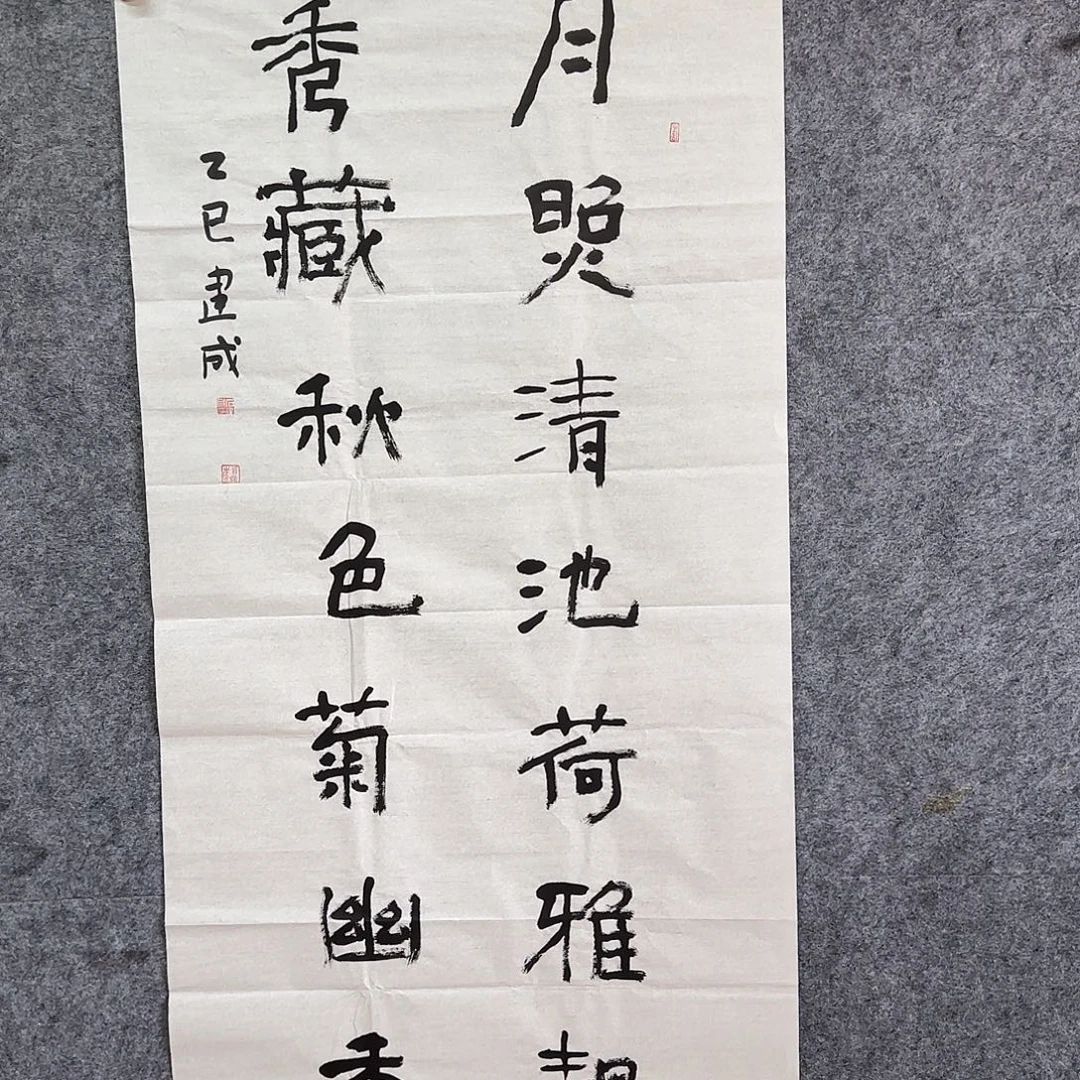 月照清池荷雅
秀藏秋色菊幽
乙巳建成